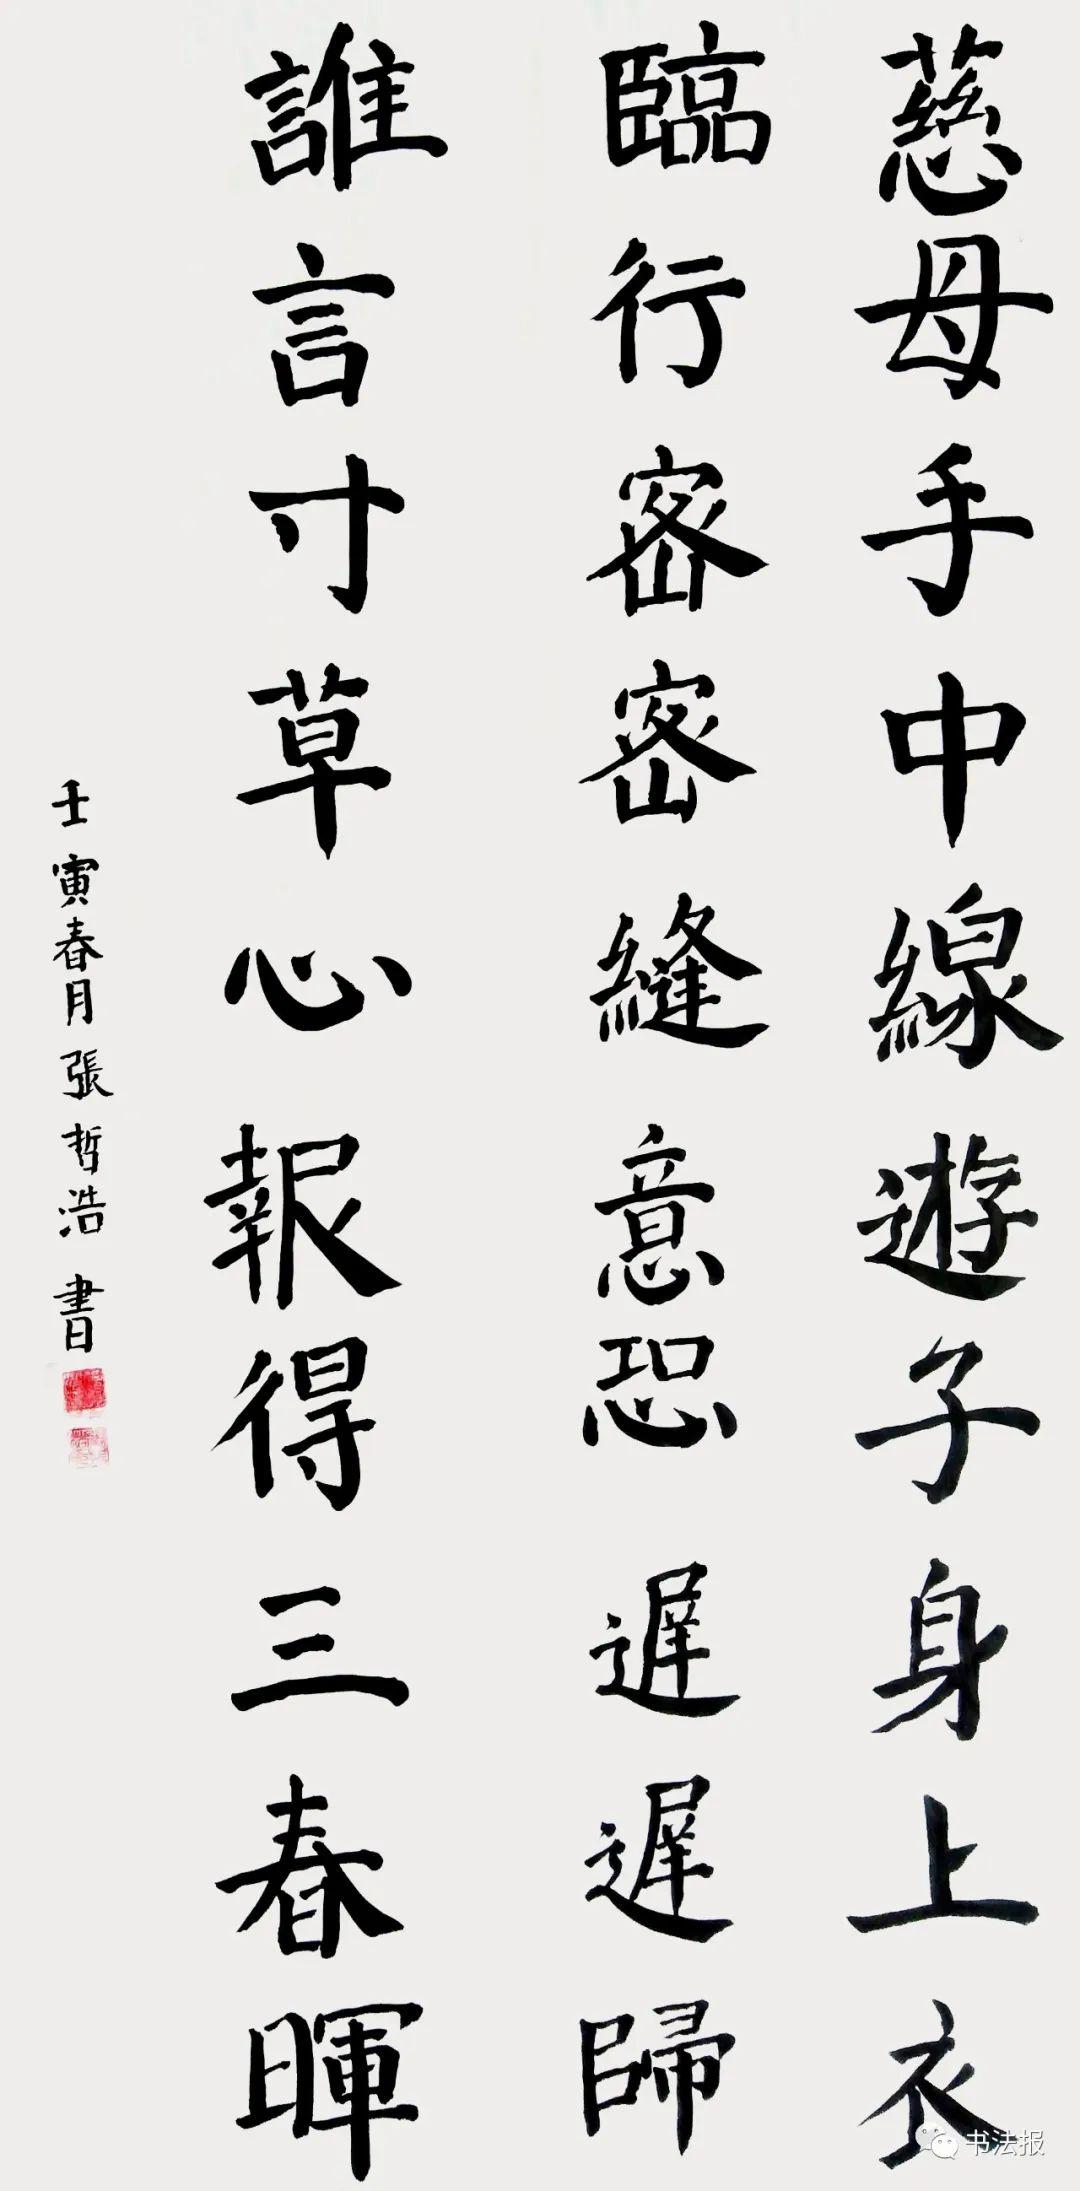 慈母手中線遊子身上衣
臨行密密縫意恐遲遲歸
誰言寸草心報得三春暉
壬寅春月張哲浩書
书法报